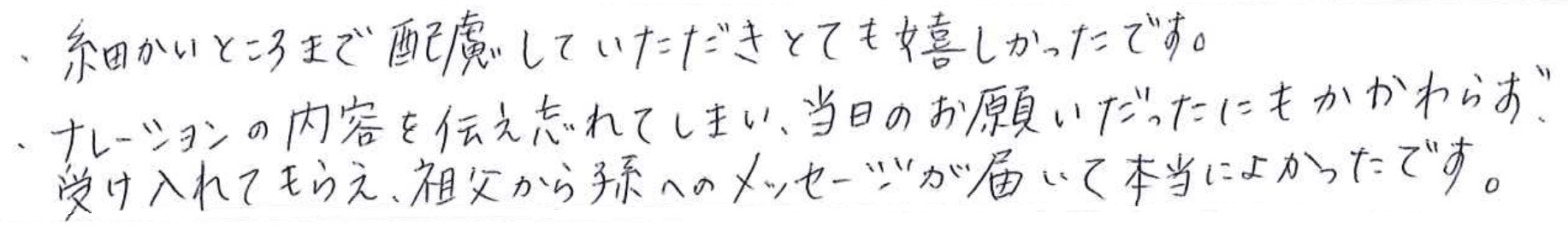 ・細かいところまで配慮していただきとても嬉しかったです。
・ナレーションの内容を伝え忘れてしまい、当日のお願いだったにもかかわらず、
受け入れてもらえ、祖父から孫へのメッセージが届いて本当によかったです。